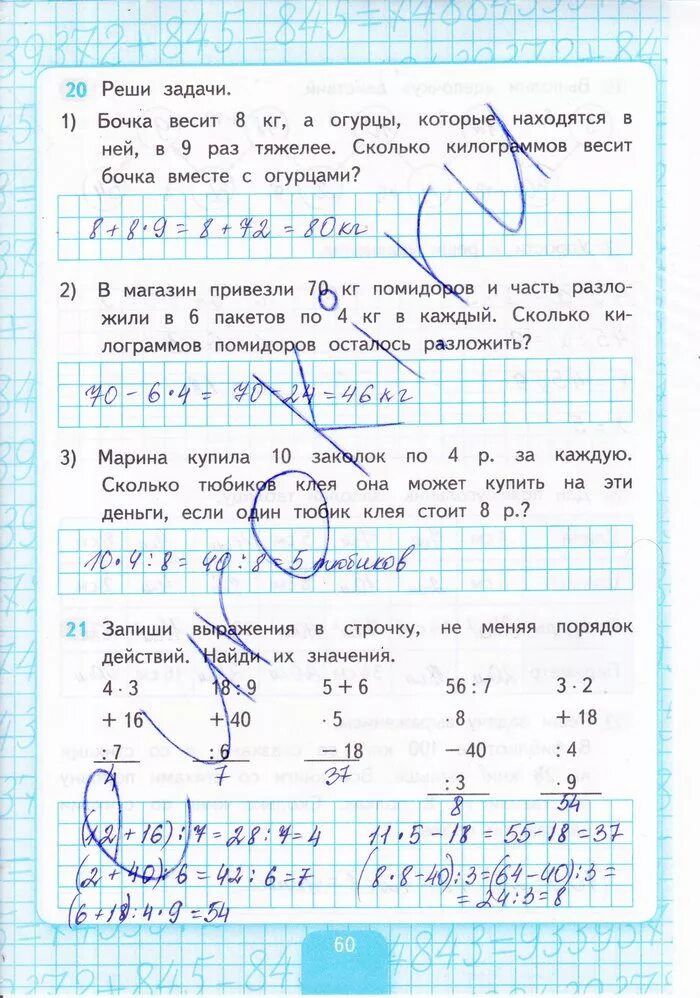 20 Реши задачи.
1) Бочка весит 8 кг, а огурцы, которые находятся в
ней, в 9 раз тяжелее. Сколько килограммов весит
бочка вместе с огурцами?
8 + 8·9 = 8 + 72 = 80 кг
2) В магазин привезли 70 кг помидоров и часть разло-
жили в 6 пакетов по 4 кг в каждый. Сколько ки-
лограммов помидоров осталось разложить?
70 - 6·4 = 70 - 24 = 46 кг
3) Марина купила 10 заколок по 4 р. за каждую.
Сколько тюбиков клея она может купить на эти
деньги, если один тюбик клея стоит 8 р.?
10·4:8 = 40:8 = 5 тюбиков
21 Запиши выражения в строчку, не меняя порядок
действий. Найди их значения.
4 · 3 18 : 9 5 + 6 56 : 7 3 · 2
+ 16 + 40 · 5 · 8 + 18
: 7 : 6 - 18 - 40 : 4
4 7 37 : 3 · 9
8 54
(12 + 16) : 7 = 28 : 7 = 4 11·5 - 18 = 55 - 18 = 37
(2 + 40) : 6 = 42 : 6 = 7 (8·8 - 40) : 3 = (64 - 40) : 3 =
= 24 : 3 = 8
(6 + 18) : 4·9 = 54
60